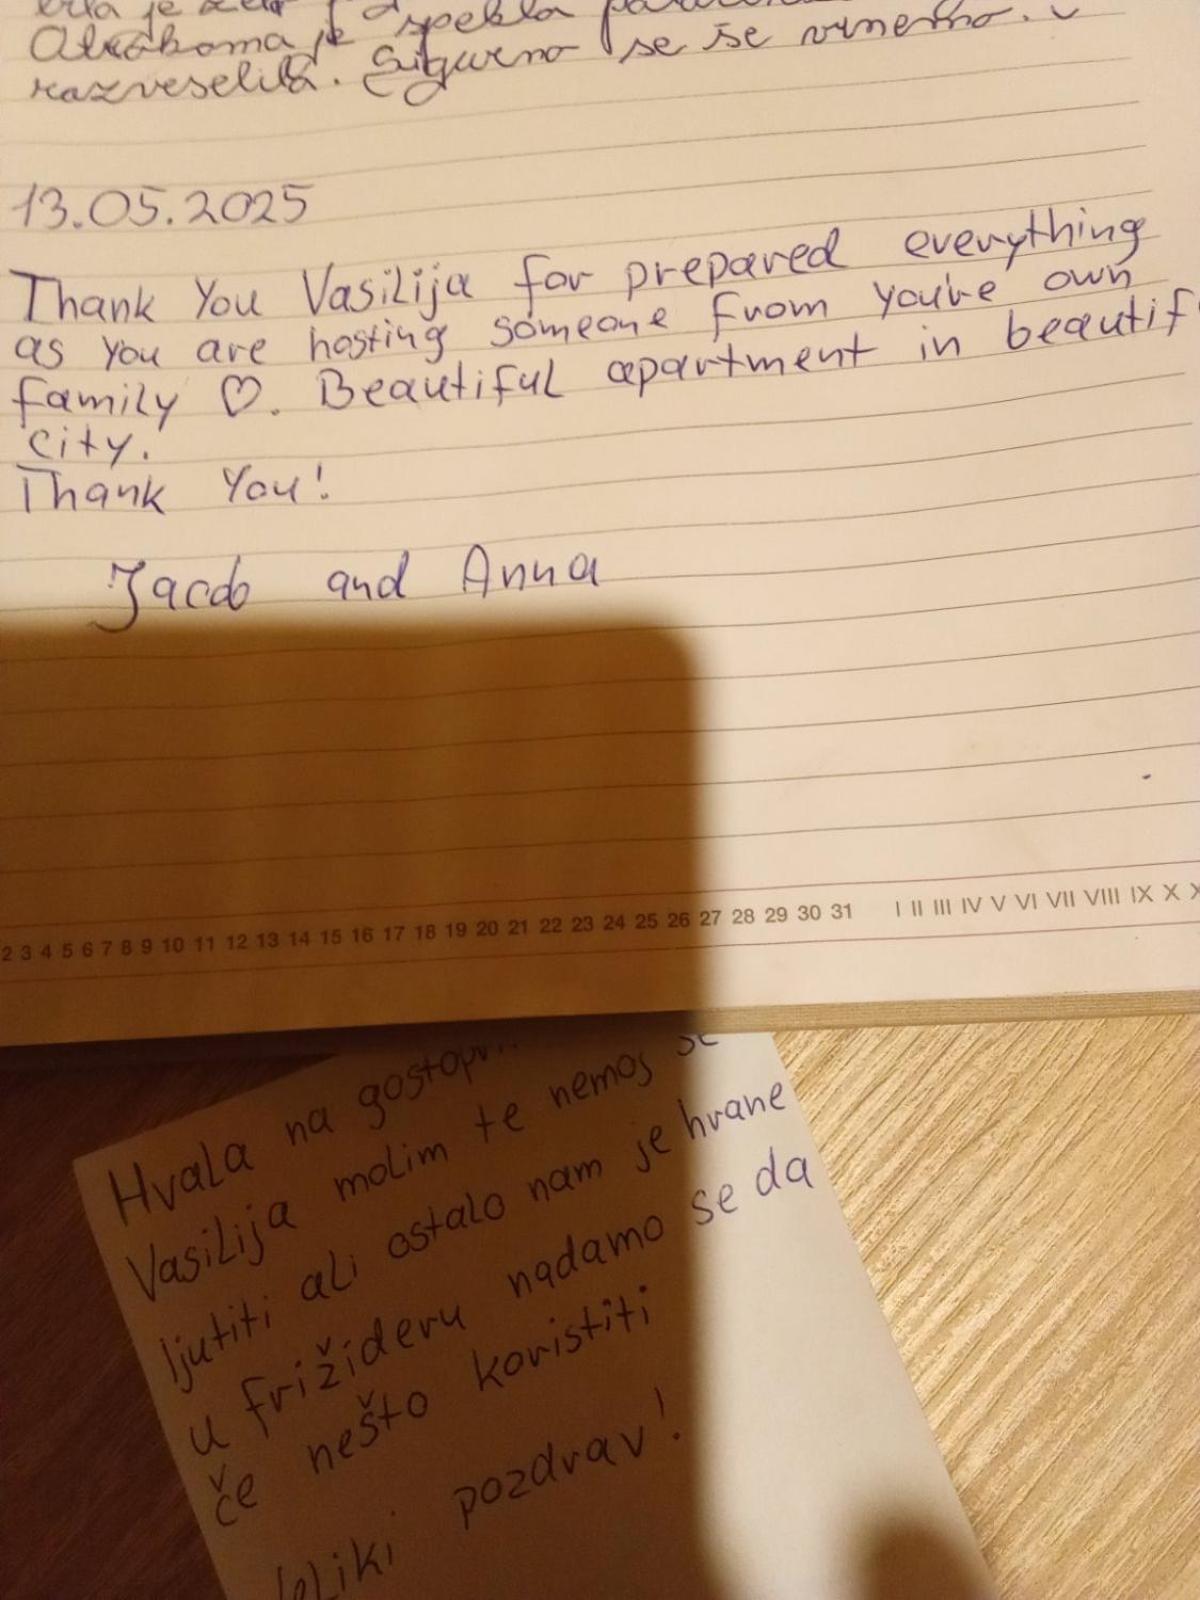 je
je spekla
razveselila. Sigurno se še vrnemo.
13.05.2025
Thank You Vasilija for prepared everything
as you are hosting someone from you're own
family ♡. Beautiful apartment in beautif
city.
Thank You!
Jacob and Anna
2 3 4 5 6 7 8 9 10 11 12 13 14 15 16 17 18 19 20 21 22 23 24 25 26 27 28 29 30 31 I II III IV V VI VII VIII IX X X
Hvala na
Vasilija molim te nemoj se
ljutiti ali ostalo nam je hrane
u frižideru nadamo se da
če nešto koristiti
Veliki pozdrav!